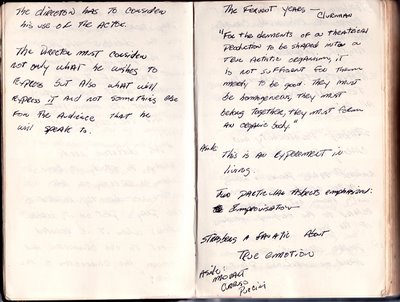 The director has to consider
his use of the actor.
The Director must consider
not only what he wishes to
express but also what will
express it and not something else
for the audience that he
will speak to.
The Fervent years —
Clurman
"For the elements of a theatrical
production to be shaped into a
true artistic organism, it
is not sufficient for them
merely to be good. They must
be homogeneous, they must
belong together, they must form
an organic body."
This is an experiment in
living.
Two particular aspects emphasized:
Improvisation
Strasberg a fanatic about
True emotion
Aside:
Mozart
Puccini